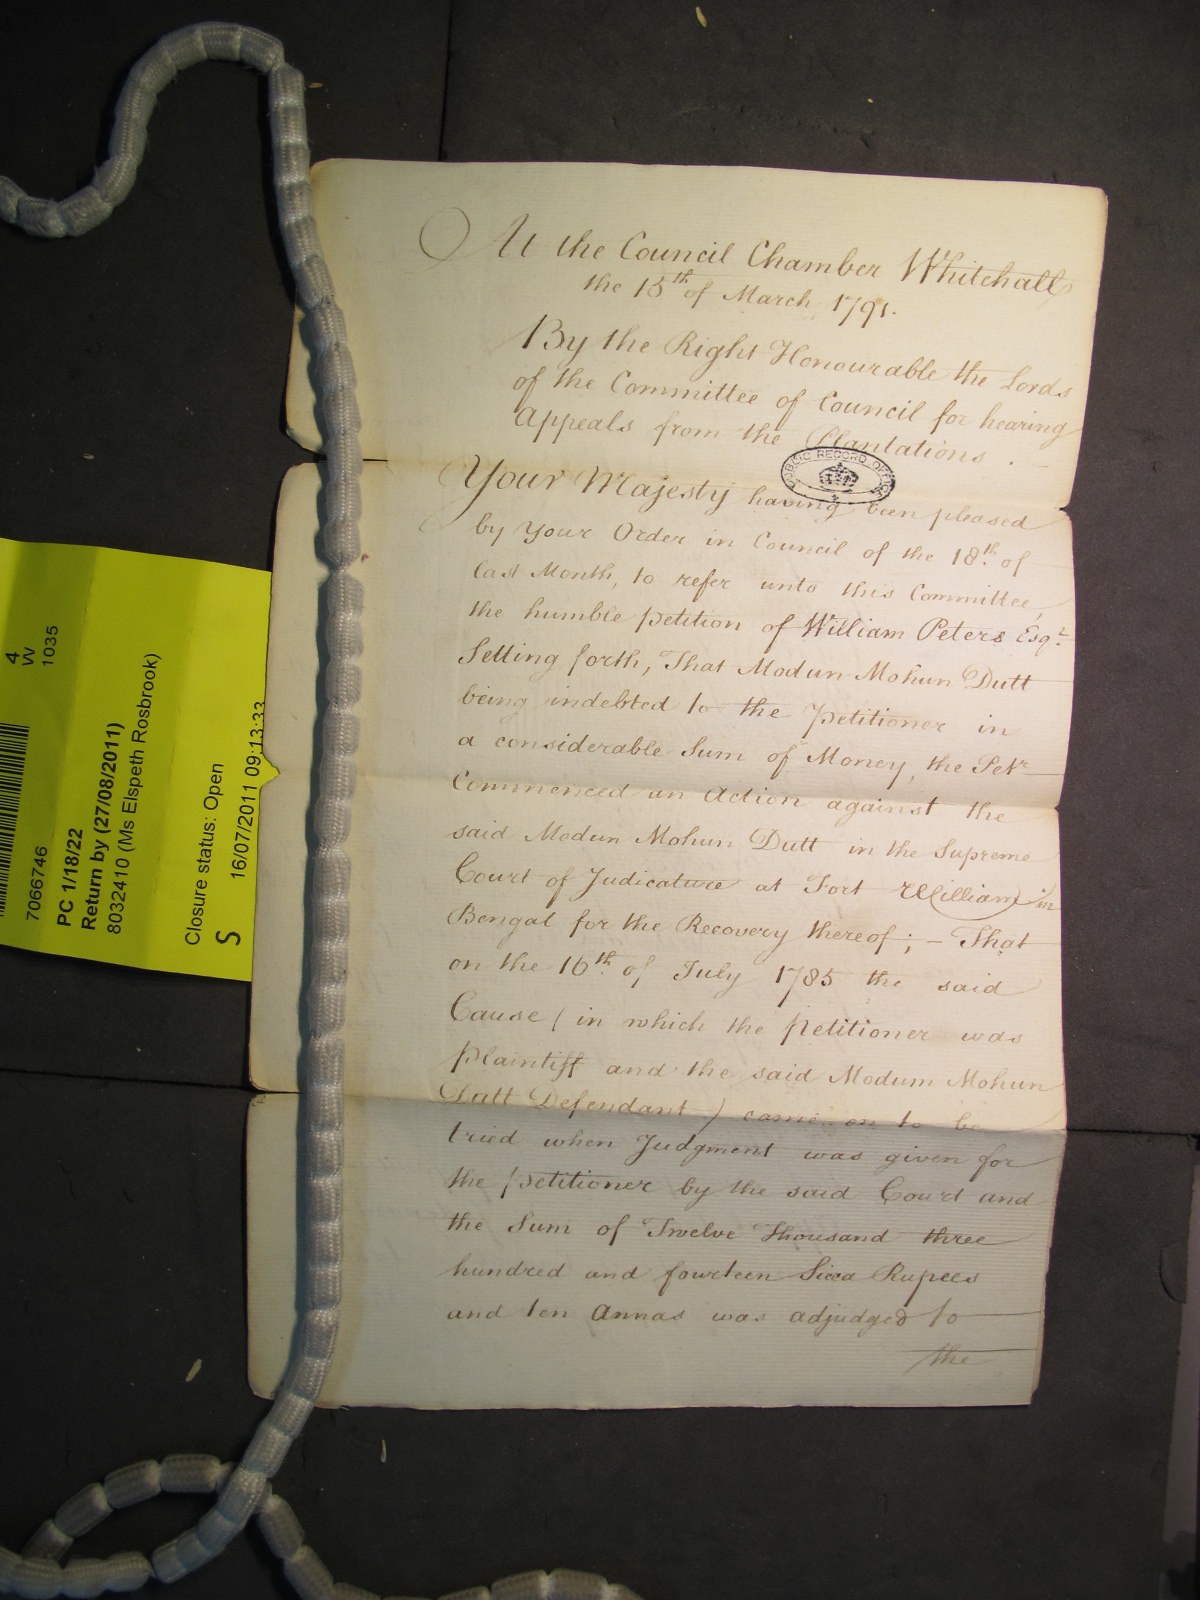 At the Council Chamber Whitehall
the 15th of March 1791.
By the Right Honourable the Lords
of the Committee of Council for hearing
Appeals from the Plantations.
PUBLIC RECORD OFFICE
Your Majesty having been pleased
by Your Order in Council of the 18th. of
last Month, to refer unto this Committee,
the humble petition of William Peters Esqr.
Setting forth, That Modun Mohun Dutt
being indebted to the Petitioner in
a considerable Sum of Money, the Petr.
Commenced an Action against the
said Modun Mohun Dutt in the Supreme
Court of Judicature at Fort William in
Bengal for the Recovery thereof; – That
on the 16th. of July 1785 the said
Cause (in which the Petitioner was
Plaintiff and the said Modum Mohun
Dutt Defendant) came on to be
tried when Judgment was given for
the petitioner by the said Court and
the Sum of Twelve Thousand three
hundred and fourteen Sicca Rupees
and ten Annas was adjudged to
the
4
W
1035
7066746
PC 1/18/22
Return by (27/08/2011)
8032410 (Ms Elspeth Rosbrook)
Closure status: Open
S
16/07/2011 09:13:33